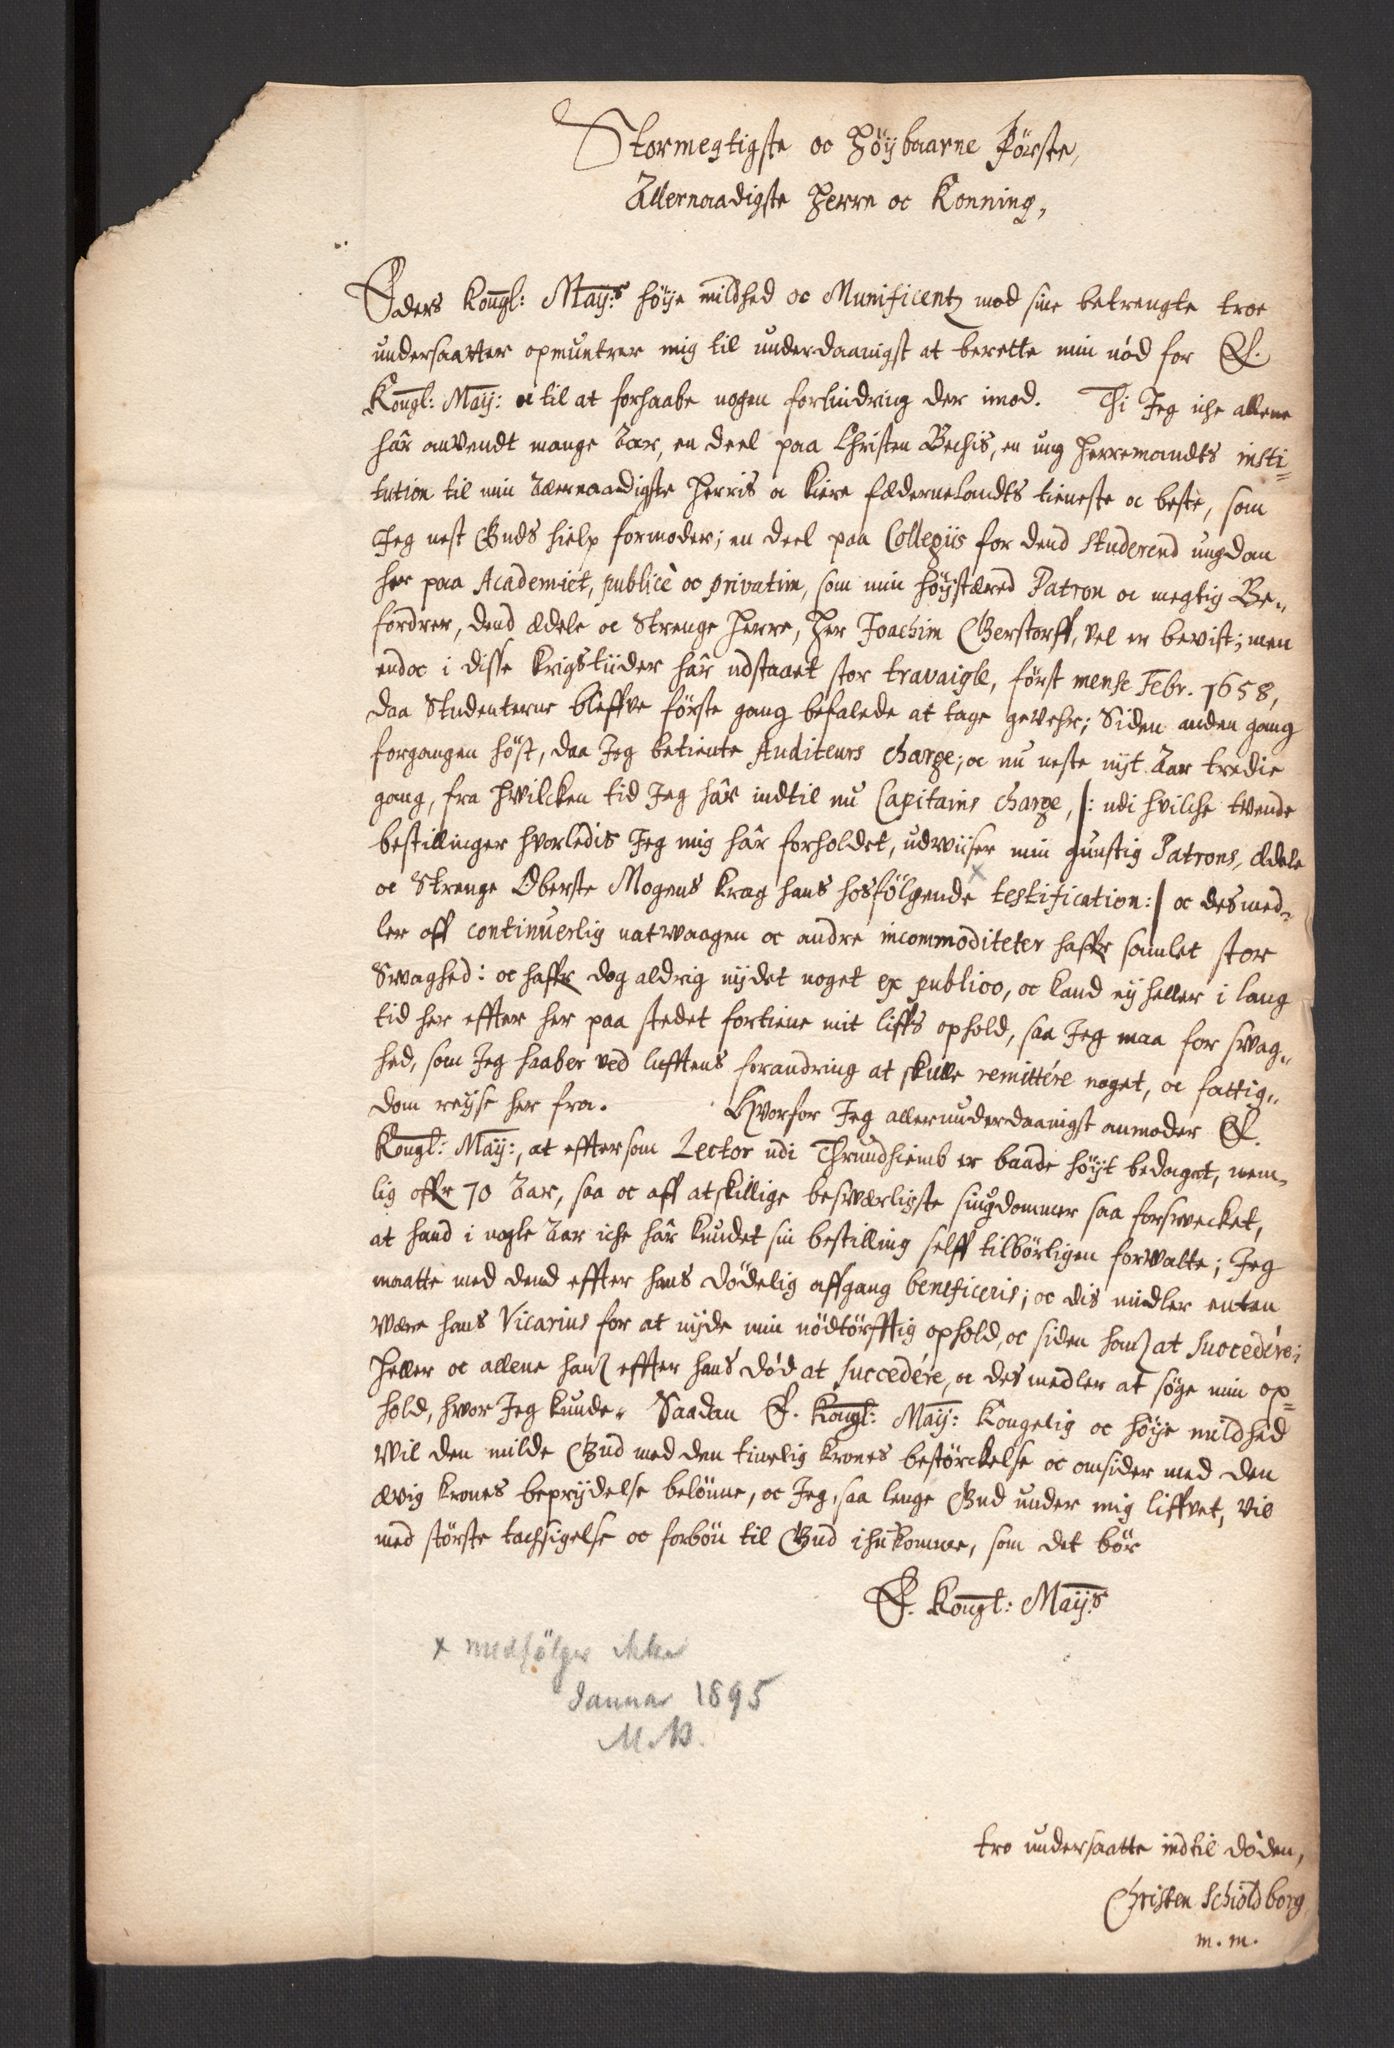 Stormegtigste oc Høÿbaarne Første,
Allernaadigste Herre oc Konning,
Eders Kongl: Maÿ:s høÿe mildhed oc Munificentz mod sine betrengte troe
undersaatter opmuntrer mig til underdaanigst at berette min nød for E.
Kongl: Maÿ: oc til at forhaabe nogen forlindring der imod. Thi Jeg iche allene
hâr anvendt mange Aar, en deel paa Christen Bechis, en ung Herremandts insti=
tution til min Aller­naadigste Herris oc kiere fædernelandts tieneste oc beste, som
Jeg nest Guds hielp formoder; en deel paa Collegiis for dend studerend ungdom
her paa Academiet, publicè oc privatim, som min høÿstæred Patron oc megtig Be„
fordrer, dend ædele oc Strenge Herre, Her Joachim Gerstorff, vel er bevist; men
endoc i disse krigstiider hâr udstaaet stor travaigle, først mense Febr. 1658,
daa Studenterne bleffve første gang befalede at tage gevehr; Siden anden gang
forgangen høst, daa Jeg betiente Auditeurs charge; oc nu neste nÿt Aar tredie
gang, fra hvilcken tid Jeg hâr indtil nu Capitains charge, /: udi hvilche tvende
bestillinger hvorledis Jeg mig hâr forholdet, udwiiser min gunstig Patrons, ædele
oc Strenge Oberste Mogens Krag hans hosfølgende x testification :/ oc desmed„
ler aff continuerlig natwaagen oc andre incommoditeter haffr samlet stor
Swaghed: oc haffr dog aldrig nÿdet noget ex publico, oc kand eÿ heller i lang
tid her effter her paa stedet fortiene mit liffs ophold, saa Jeg maa for swag„
hed, som Jeg haaber ved lufftens forandring at skulle remittére noget, oc fattig„
dom reÿse her fra. Hvorfor Jeg allerunderdaanigst anmoder E.
Kongl: Maÿ:, at effter som Lector udi Thrundhiemb er baade høÿt bedaget, nem„
lig offr 70 Aar, saa oc aff atskillige besværligste siugdommer saa forswecket,
at hand i nogle Aar iche hâr kundet sin bestilling self tilbørligen forwalte; Jeg
maatte med dend effter hans dødelig affgang beneficeris; oc dis midler enten
være hans Vicarius for at nÿde min nødtørfftig ophold, oc siden hanß at succedére;
heller oc allene hanß effter hans død at succedére, oc desmedler at søge min op=
hold, hvor Jeg kunde. Saadan E. Kongl: Maÿ: Kongelig oc høÿe mildhed
wil den milde Gud med den timelig krones bestørckelse oc omsider med den
ævig krones beprÿdelse belønne, oc Jeg, saa lenge Gud under mig liffvet, vil
med største tachsigelse oc forbøn til Gud ihukomme, som det bør
E. Kongl: Maÿ:s
x medfølger ikke
Januar 1895
tro undersaatte indtil døden,
Christen Schioldborg
m. m.